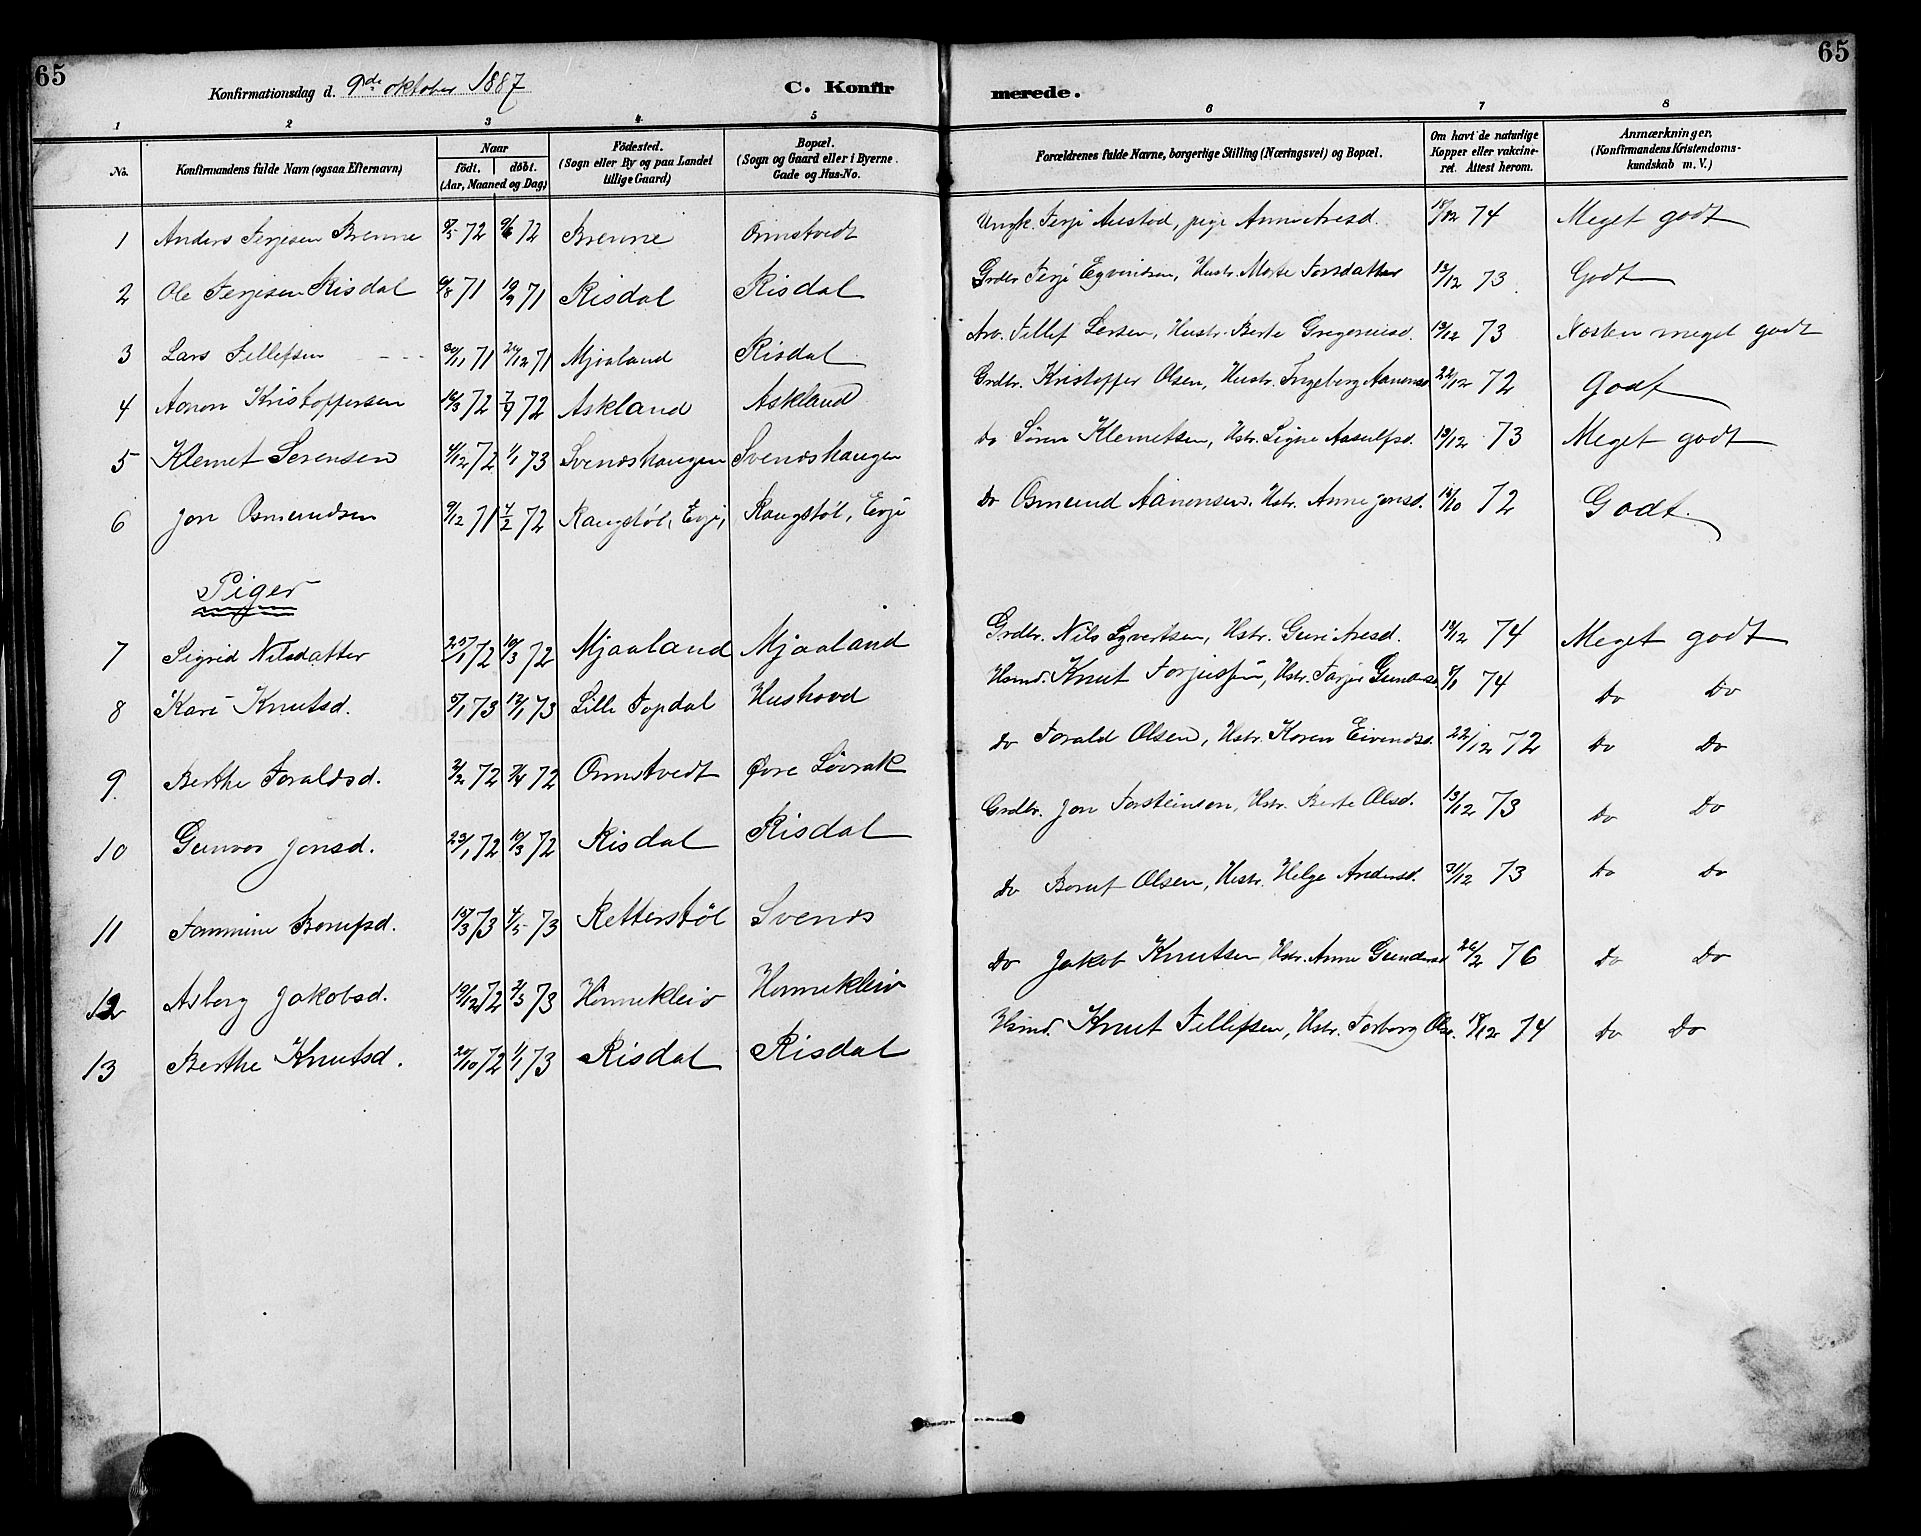 65
65
Konfirmationsdag d. 9de oktober 1887
C. Konfirmerede.
1 2 3 4 5 6 7 8
No.
Konfirmandens fulde Navn (ogsaa Efternavn)
Naar
födt. döbt.
(Aar, Maaned og Dag)
Födested.
(Sogn eller By og paa Landet
tillige Gaard)
Bopæl.
(Sogn og Gaard eller i Byerne
Gade og Hus-No.
Forældrenes fulde Navne, borgerlige Stilling (Næringsvei) og Bopæl.
Om havt de naturlige
Kopper eller vakcine-
ret. Attest herom.
Anmærkninger.
(Konfirmandens Kristendoms-
kundskab m. V.)
1 Anders Terjesen Brenne 72 9/6 72 Brenne Ormstvedt Ungk. Terje Austad, pige Anne Aresd. 18/12 74 Meget godt
2 Ole Terjesen Risdal 6/8 71 71 Risdal Risdal Grdbr Terje Eyvindsen, Hustr. Marte Torsdatter 13/12 73 Godt
3 Lars Tellefsen - - - 30/11 71 24/12 71 Mjaaland Risdal Arb. Tellef Larsen, Hustr. Berte Gregeriusd. 13/12 73 Næsten meget godt
4 Aanon Kristoffersen 16/3 72 7/4 72 Askland Askland Grdbr. Kristoffer Olsen, Hustr. Ingeborg Aanonsd 22/12 72 Godt
5 Klemet Sørensen 4/12 72 1/1 73 Svendshaugen Svendshaugen Do Søren Klemetsen, Hstr. Signe Aasulfsd. 13/12 73 Meget godt
6 Jon Osmundsen 9/12 71 4/2 72 Raugstøl, Evje, Raugstøl, Evje Do Osmund Aanonsen, Hstr. Anne Jonsd. 16/10 72 Godt.
Piger
7 Sigrid Nilsdatter 25/1 72 10/3 72 Mjaaland Mjaaland Grdbr. Nils Syvertsen, Hstr. Guri Aresd. 18/12 74 Meget godt
8 Kari Knutsd. 5/1 73 12/1 73 Lille Topdal Hushovd Hsmd. Knut Torjussen, Hstr. Torjer Gunders. 74 Do Do
9. Berthe Toraldsd. 2/2 72 7/4 72 Ormstvedt Øvre Løvrak Do Torald Olsen, Hstr. Karen Eivendsd. 22/12 72 Do Do
10 Gunvor Jonsd. 23/1 72 10/3 72 Risdal Risdal Grdbr. Jon Torsteinsen, Hstr. Berte Olsd. 13/12 73 Do Do
11 Tammine Bentsd. 15/3 73 4/5 73 Retterstøl Svends Do Bernt Olsen, Hustr. Helge Andersd. 31/12 73 Do Do
12 Asborg Jakobsd. 19/12 72 2/3 73 Honnekleiv Honnekleiv Do Jakob Knutsen Hstr. Anne Gundersd 26/2 76 Do Do
13 Berthe Knutsd. 20/10 72 1/1 73 Risdal Risdal Hsmd. Knut Tellefsen, Hstr. Torborg Olsd. 18/12 74 Do Do